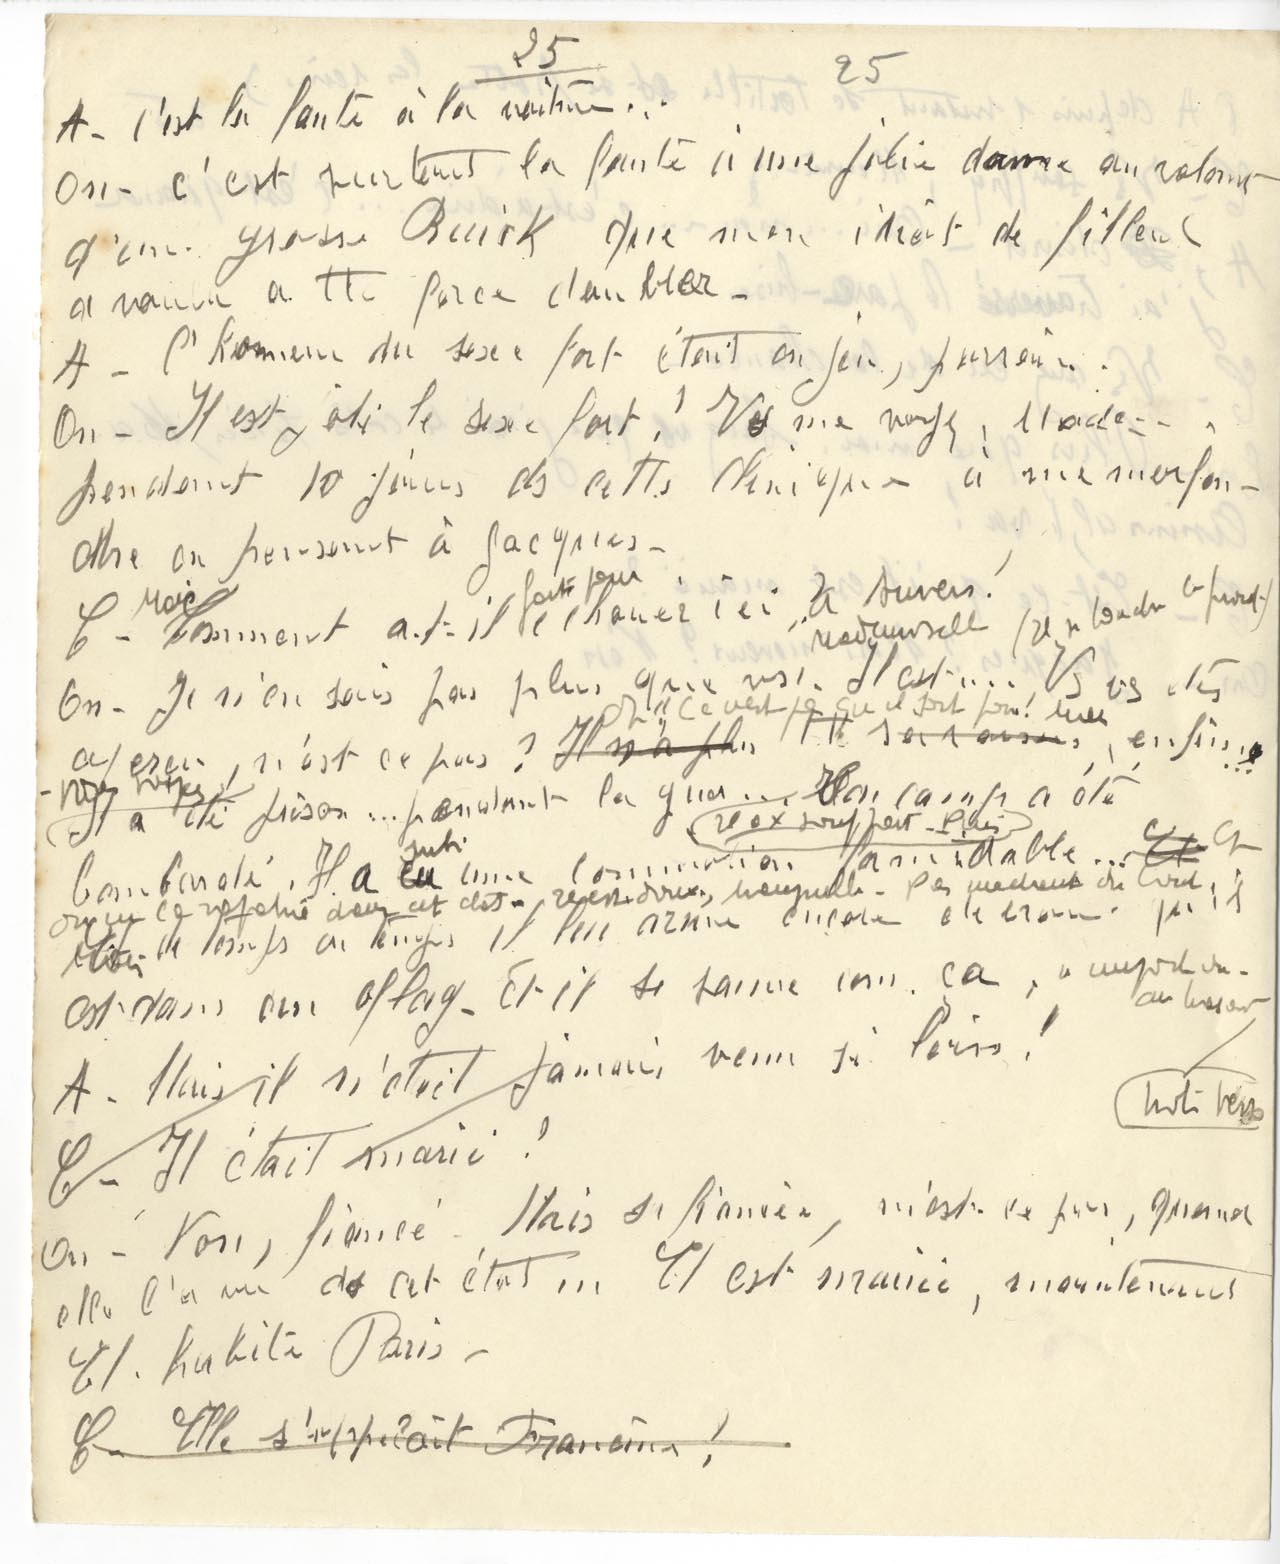 25 25
A - C'est la faute à la voiture...
On - C'est surtout la faute à une jolie dame au volant
d'une grosse Buick que mon idiot de filleul
a voulu à tte force doubler -
A - L'honneur du sexe fort était en jeu, parrain.
On - Il est joli le sexe fort! Vs me voyez, Made...
pendant 10 jours ds cette clinique à me morfon-
dre en pensant à Jacques -
C - Mais Comment a-t-il fait pour échouer ici, à Anvers!
Mademoiselle
On - Je n'en sais pas plus que vs. Il est... Vs vs êtes
Oh! Ce n'est pas qu'il soit fou! mais
aperçu, n'est ce pas? Il n'a plus tte sa raison, enfin...
- vous voyez
Il a été prison... pendant la guer... Son camp a été
bombardé. Il a subi eu une commotion formidable... Et
de temps en temps il lui arrive encore de croire qu'il
est dans un oflag - Et il se sauve com. ça, n'importe où -
au hasard
A - Mais il n'était jamais venu si loin!
C - Il était marié?
On - Non, fiancé - Mais sa fiancée, n'est-ce pas, quand
elle l'a vu ds cet état... El est mariée, maintenant
El. habite Paris -
C - Elle s'appelait Francine!